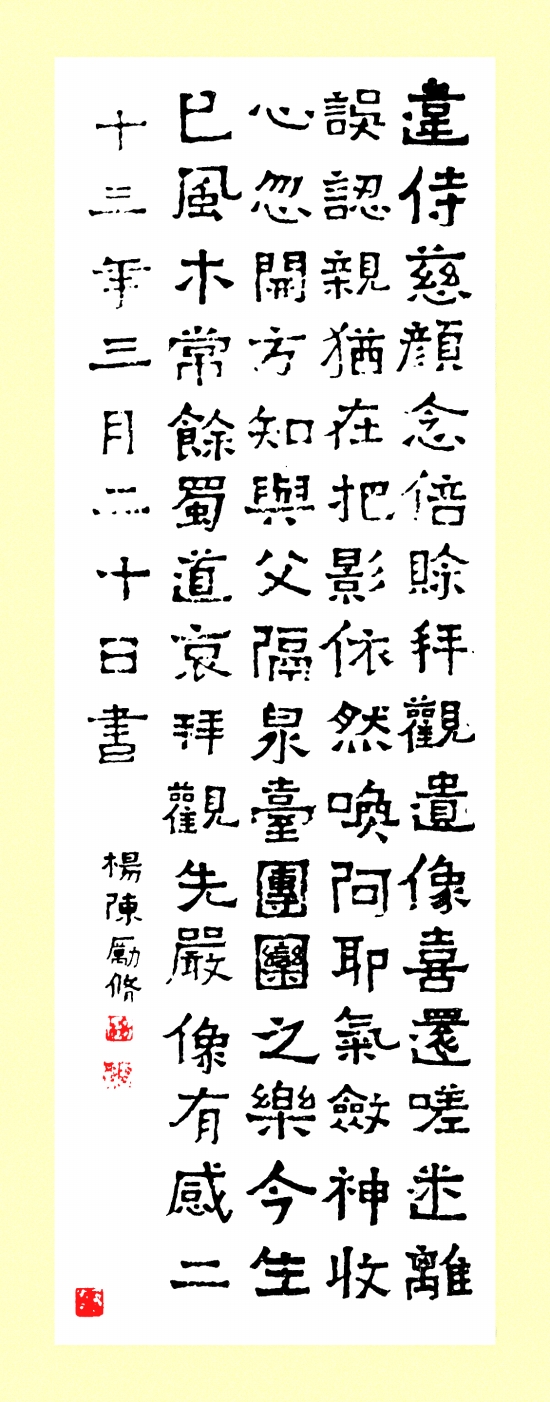 違侍慈顏念倍賒拜觀遺像喜還嗟迷離
誤認親猶在把影依然喚阿耶氣斂神收
心忽開方知與父隔泉臺團圞之樂今生
已風木常餘蜀道哀拜觀先嚴像有感二
十三年三月二十日書
楊陳勵脩